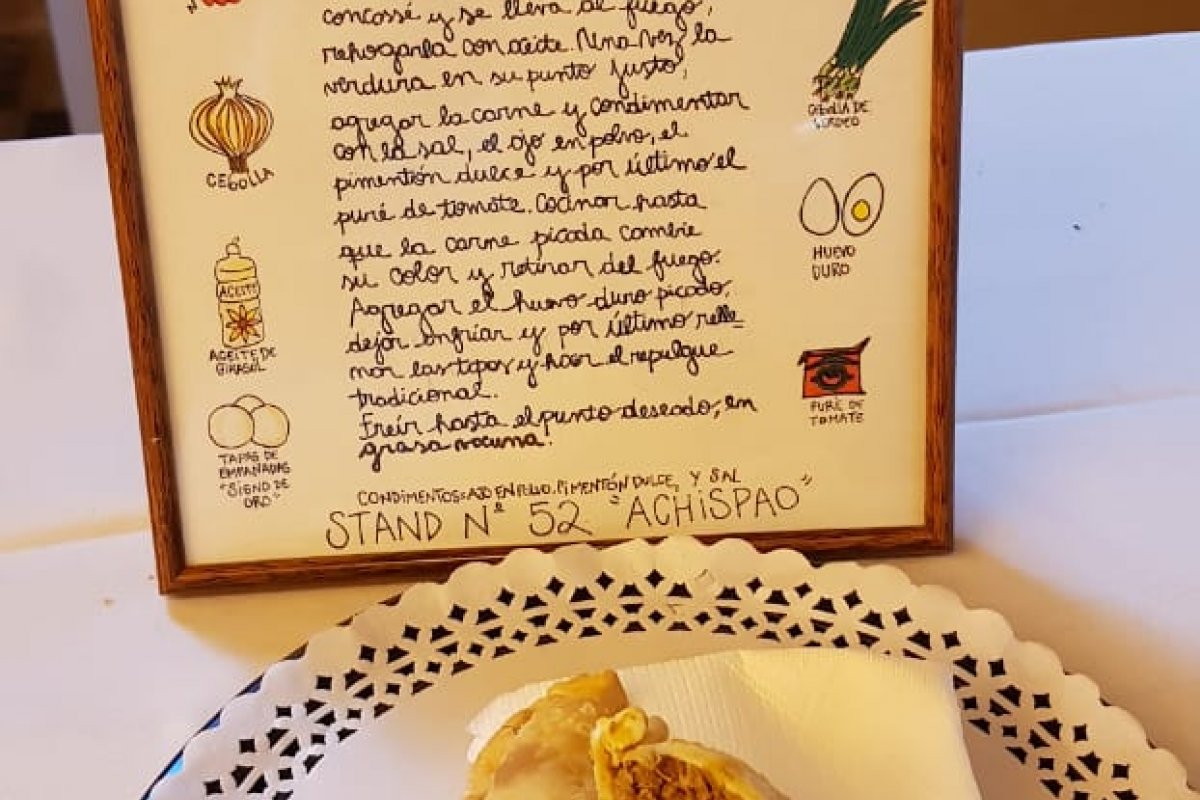 concassé y se lleva al fuego,
rehogarla con aceite. Una vez la
verdura en su punto justo,
agregar la carne y condimentar
con la sal, el ajo en polvo, el
pimentón dulce y por último el
puré de tomate. Cocinar hasta
que la carne picada cambie
su color y retirar del fuego.
Agregar el huevo duro picado,
dejar enfriar y por último relle=
nar las tapas y hacer el repulgue
tradicional.
Freír hasta el punto deseado, en
grasa vacuna.
CONDIMENTOS: AJO EN POLVO, PIMENTÓN DULCE, Y SAL
STAND Nº 52 "ACHISPAO"
CEBOLLA
ACEITE
ACEITE DE
GIRASOL
TAPAS DE
EMPANADAS
"SIGNO DE
ORO"
CEBOLLA DE
VERDEO
HUEVO
DURO
PURÉ DE
TOMATE